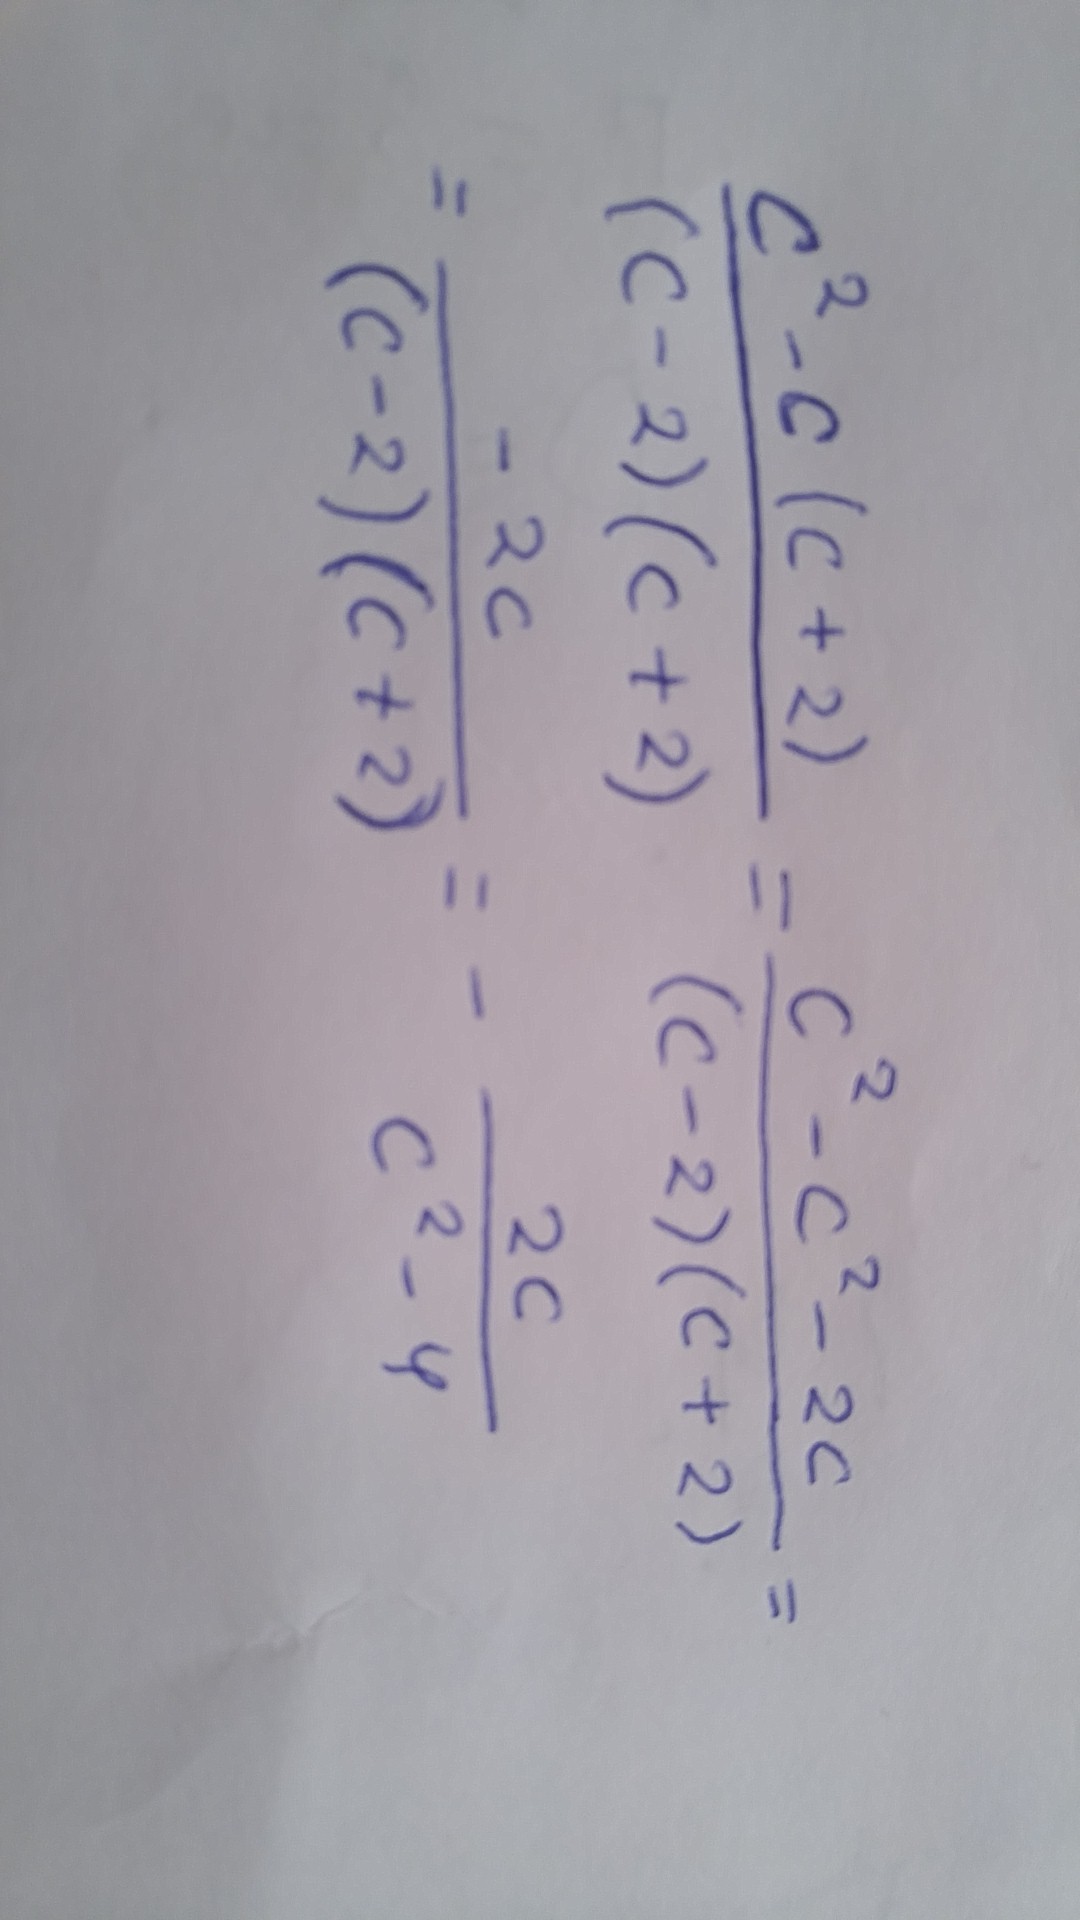 \frac{c^2-c(c+2)}{(c-2)(c+2)} = \frac{c^2-c^2-2c}{(c-2)(c+2)} =
= \frac{-2c}{(c-2)(c+2)} = -\frac{2c}{c^2-4}